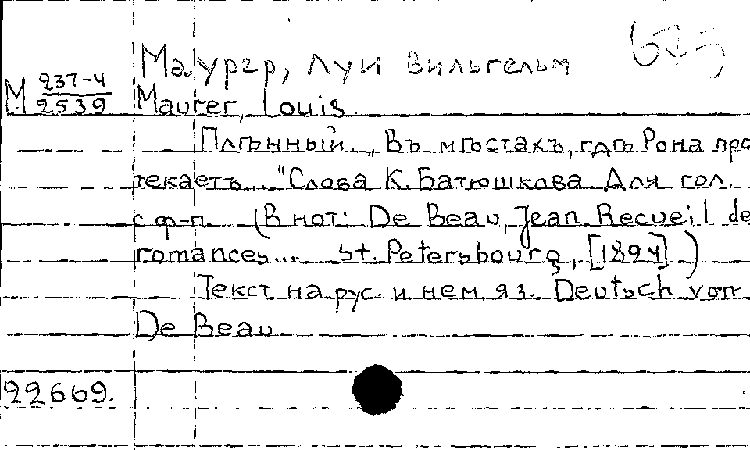 Маурер, Луи Вильгельм
М 237-4
2539
Maurer, Louis.
Плѣнный. „Въ мѣстахъ, гдѣ Рона про
текаетъ..." Слова К. Батюшкова Для гол.
с ф-п. (В нот: De Beau, Jean. Recueil de
romances... St. Petersbourg, [1824])
Текст на рус. и нем. яз. Deutsch von
De Beau.
22669.